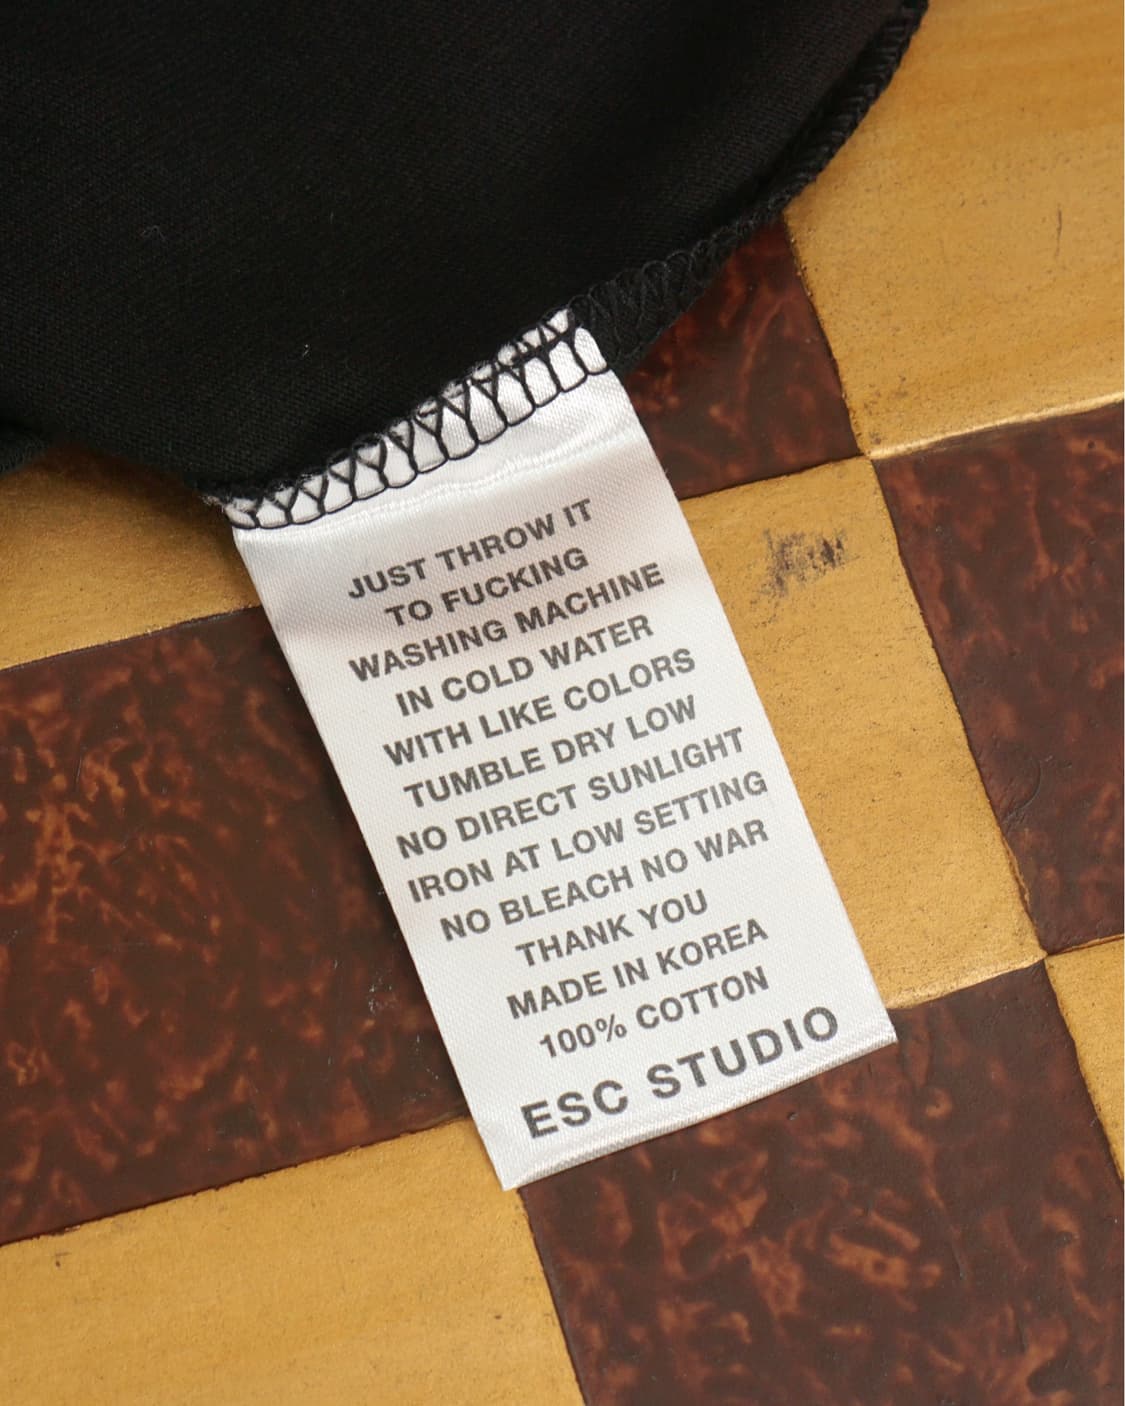 JUST THROW IT
TO FUCKING
WASHING MACHINE
IN COLD WATER
WITH LIKE COLORS
TUMBLE DRY LOW
NO DIRECT SUNLIGHT
IRON AT LOW SETTING
NO BLEACH NO WAR
THANK YOU
MADE IN KOREA
100% COTTON
ESC STUDIO